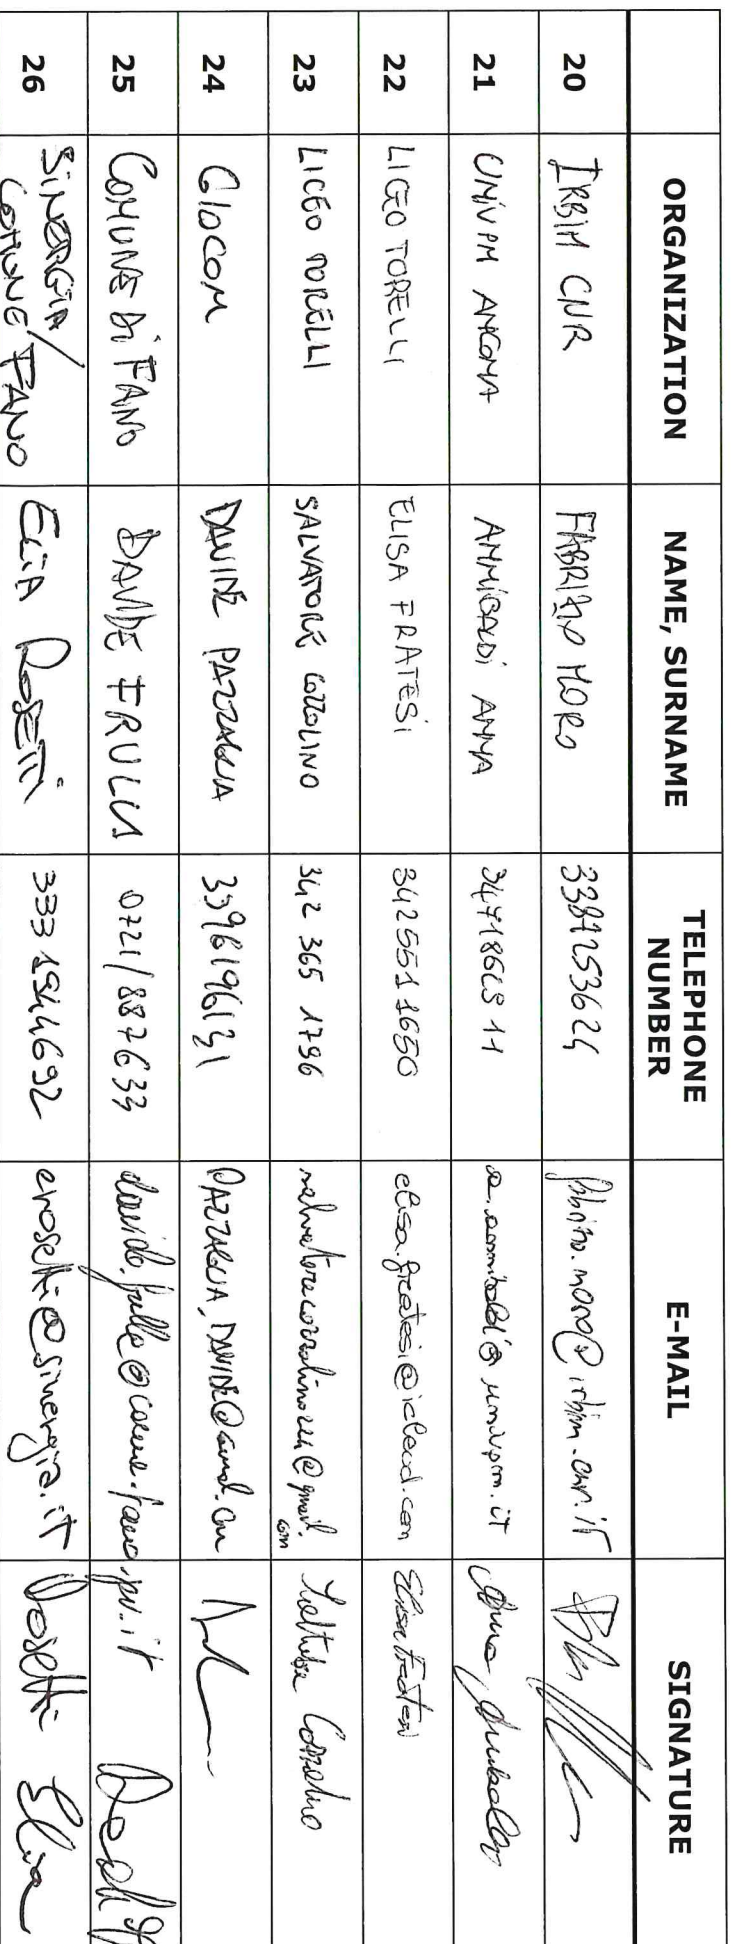 ORGANIZATION NAME, SURNAME TELEPHONE NUMBER E-MAIL SIGNATURE
20 IRBIM CNR FABRIZIO MORO 3381253624 @irbim.cnr.it
21 UNIVPM ANCONA ANNIBALDI ANNA 3471865811 a.annibaldi@univpm.it
22 LICEO TORELLI ELISA FRATESI 3425511650 elisa.fratesi@icloud.com Elisa Fratesi
23 LICEO TORELLI SALVATORE COZZOLINO 342 365 1796 Cozzolino
24 GIOCOM DAVIDE PAZZAGLIA 3396196131 PAZZAGLIA.DAVIDE@gmail.com
25 COMUNE Di FANO DAVIDE FRULLA 0721/887633
26 SiNERGIA/ COMUNE FANO ELIA ROSETTi 333 1944692 erosetti@sinergia.it Rosetti Elia